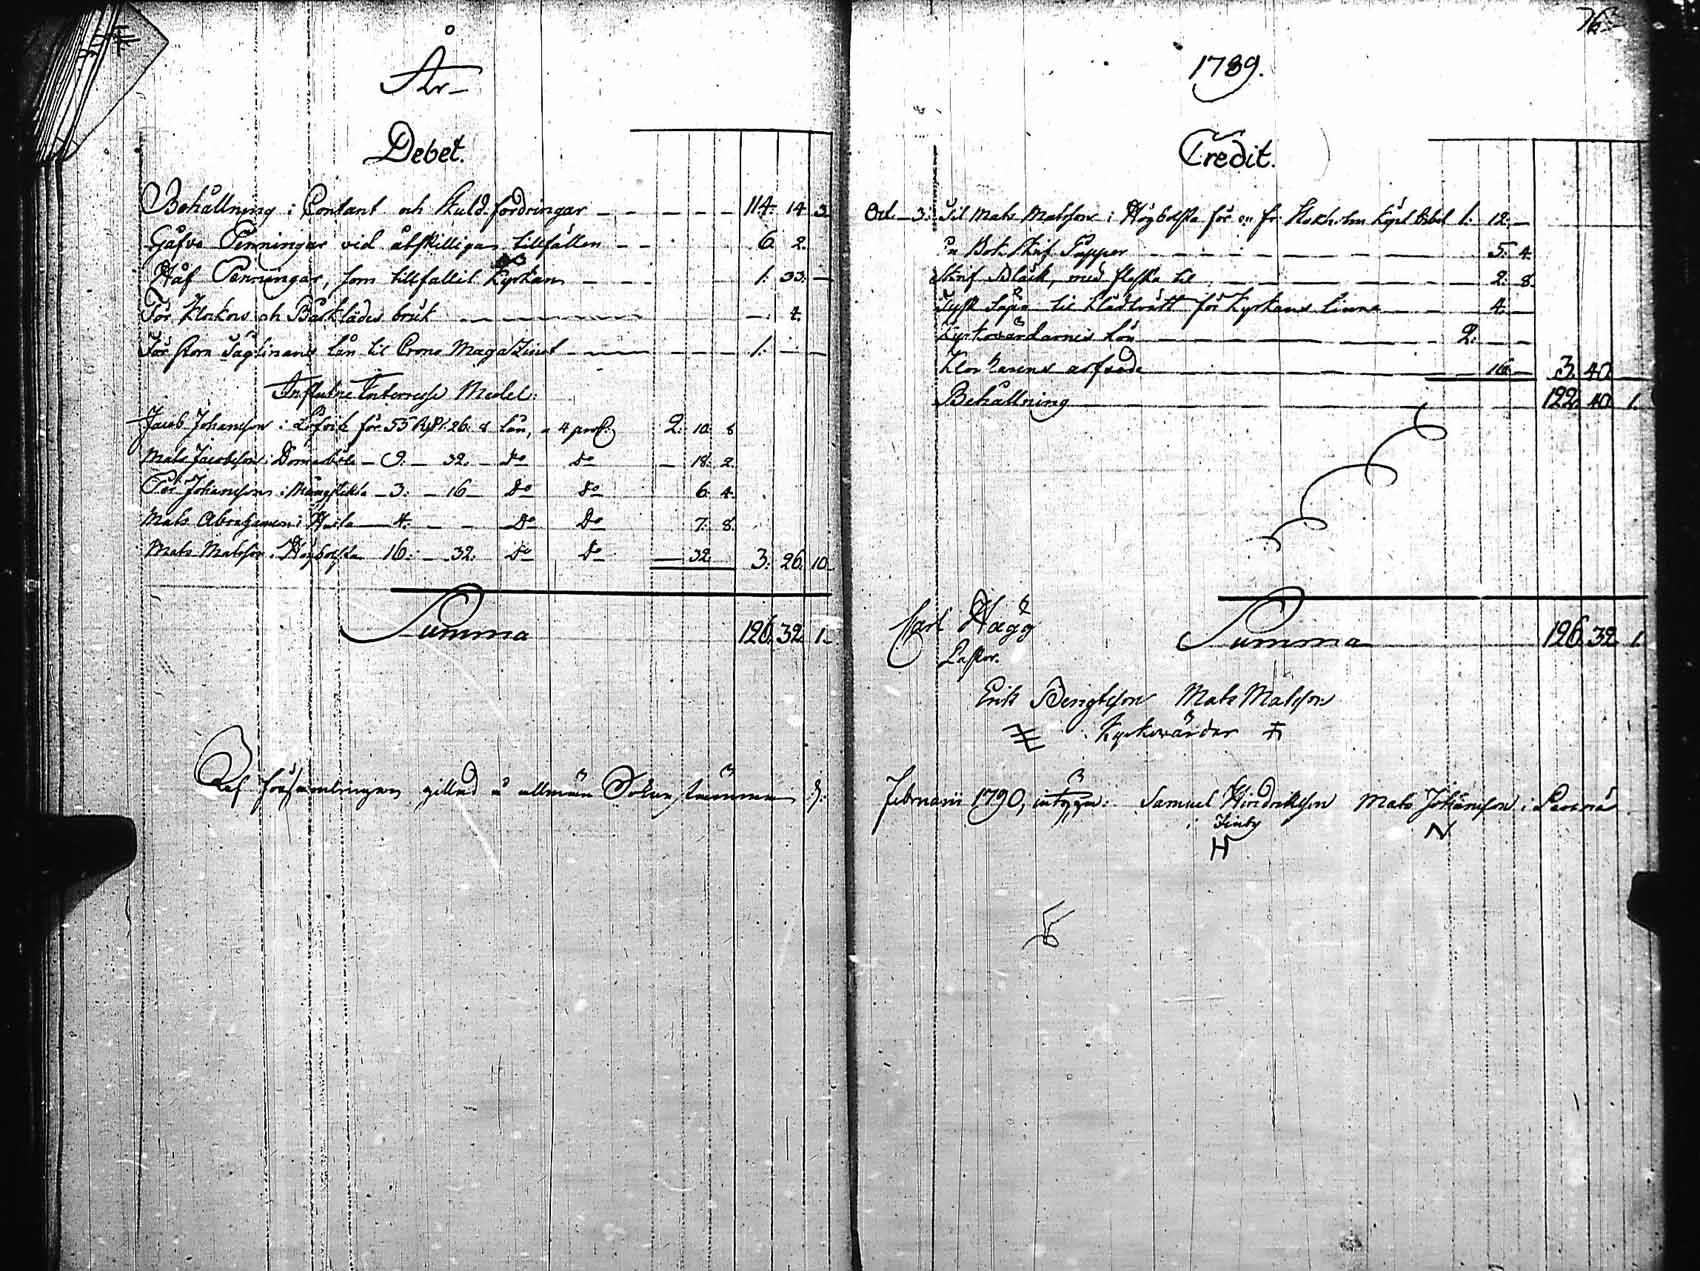 År
Debet.
Behållning i Contant och Skuldfordringar — — — — 114. 14. 3
Gåfvo Penningar vid åtskilliga tillfällen — — 6. 2.
Håf Penningar, som tillfallit Kyrkan — — — 1. 33. —
För Klockors och Bårklädes bruk — — — 4.
För Säglinans lån til Crono Magazinet — — 1: — —
Influtne Interesse Medel:
Jacob Johansson i Löfvik för 55 Rd. 26. 8 lån, a 4 proC. 2: 10. 8
Mats Jacobsson i — 9. — 32. — Do Do — 18. 2.
Per Johansson i — 3: — 16 — Do Do 6. 4.
Mats Abrahamsson i — 4. — — Do Do 7. 8.
Mats Matsson i Högbolsta 16: — 32: Do Do — 32. 3: 26. 10
Summa 126. 32. 1.
Af församlingen gillad å allmän Sokne stämma d.
76.
1789.
Credit.
Oct. 3. Til Mats Matsson i Högbolsta för en fr. Stockholm 1: 12. —
Bok Skrif Papper — — — 5. 4
Skrif Bläck, med flaska til — — — 2. 8.
Tysk Såpa til Klädtvätt för Kyrkans linne — — 4. —
Kyrkovärdarnes Lön — — — 2: — —
Klockarens — — 16. — 3. 40. —
Behållning — — — 122. 40. 1.
Summa 126. 32. 1.
Carl Hägg
Pastor.
Erik Bengtsson Mats Matsson
Kyrkovärdar
Februarii 1790, intyga: Samuel Hindricksson Mats Johansson i
i Finby
H N